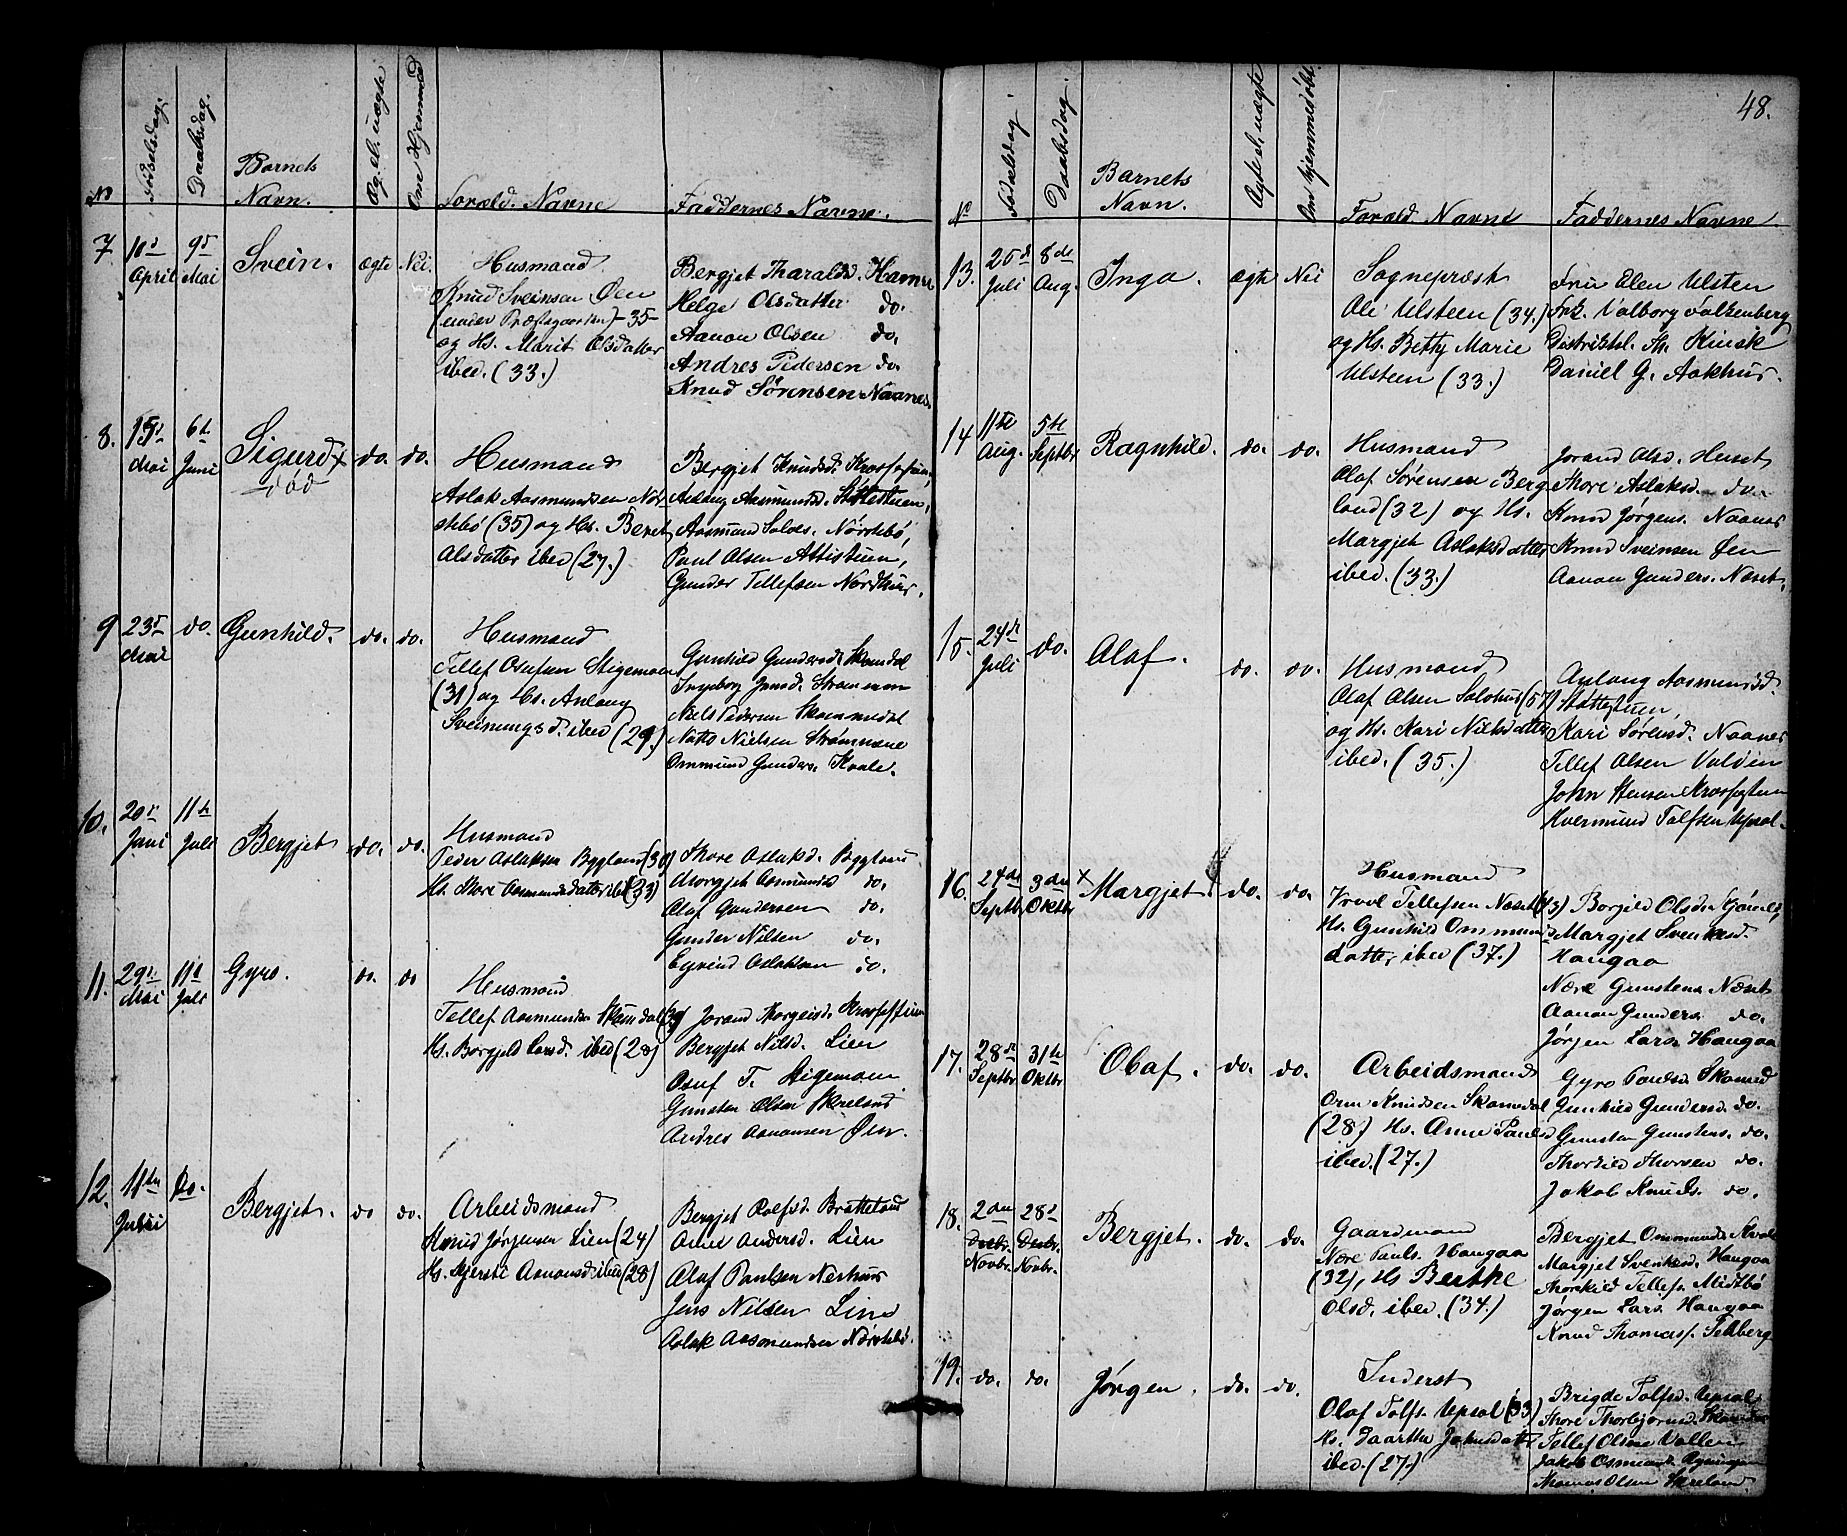 No
Fødselsdag.
Daabsdag.
Barnets
Navn.
Æg. el. uægte
Om Hjemmed
Foræld. Navne
Faddernes Navne.
7.
10de
April
9de
Mai
Svein.
ægte
Nei.
Husmand
Knud Sveinsen Øen
(under Præstegaarden) - 35 -
og Hs. Marit Olsdatter
ibed. (33.)
Bergjet Tharalds. Hamre
Helge Olsdatter do.
Aanon Olsen do.
Andres Pedersen do.
Knud Sørensen Naanes.
8.
Mai
6te
Juni
Sigurd x
død
do.
do.
Husmand
Aslak Aasmundsen Nør-
stebø (35) og Hs. Beret
Alsdatter ibed (27.)
Bergjet Knudsd.
Aslaug Aasmundsd. Støttestuen,
Aasmund Salves. Nørstebø,
Paul Olsen Attistuen,
Gunder Tellefsen Nordhus.
9
23de
Mai
do.
Gunhild.
do.
do.
Husmand
Tellef Olufsen Stigemoen
(31) og Hs. Anlaug
Sveinungsd. ibed (29.)
Gunhild Gundersd. Skamdal
Ingeborg Jensd.
Niels Pedersen Skammedal
Natto Nielsen Strømmene
Ommund Gunders. Kvale.
10.
20de
Juni
11te
Juli
Bergjet
do.
do.
Husmand
Peder Aslaksen Bygland (30)
Hs. Thore Aasmundsdatter ibed (33)
Thore Aslaksd. Bygland
Margjet Aasmunds do.
Olaf Gundersen do.
Gunder Nilsen do.
Eyvind Aslaksen do.
11.
29de
Mai
11te
Juli
Gyro.
do.
do
Husmand
Tellef Aasmunds. Skamdal
Hs. Borgjeld Larsd. ibed (28)
Jorand Thorgeisd.
Bergjet Nilsd. Lien
Osuf T. Stigemoen
Gunsten Olsen Skreland
Andres Aanonsen Øen.
12.
11te
Julii
Do.
Bergjet.
do
do.
Arbeidsmand
Knud Jørgensen Lien (24)
Hs. Kjersti Aanonsd. ibed (28)
Bergjet Rolfsd. Bratteland
Anne Andersd. Lien
Olaf Paulsen Neshus
Jens Nilsen Lind
Aslak Aasmundsen Nørstebø.
48.
No
Fødselsdag
Daabsdag.
Barnets
Navn.
Ægte el. uægte
Om hjemmedøbt.
Foræld Navne
Faddernes Navne.
13.
25de
Juli
8de
Aug.
Inga.
ægte
Nei
Sognepræst
Ole Ulsteen (34.)
og Hs. Betty Marie
Ulsteen (33.)
Fru Elen Ulsten
Frk. Valborg Valkenberg
Distriktsl. Th. Kinsk
Daniel G. Aakhus.
14
11te
Aug.
5te
Septbr
Ragnhild.
do.
do.
Husmand
Olaf Sørensen Berg
land (32) og Hs.
Margjet Aslaksdatter
ibed. (33.)
Jorand Olsd. Huset
Thore Aslaksd. do.
Knud Jørgens. Naanes
Knud Sveinsen Øen
Aanon Gunders. Næset.
15.
24de
Juli
do.
Olaf.
do.
do.
Husmand
Olaf Olsen Salohus (57)
og Hs. Kari Nielsdatter
ibed. (35.)
Aslaug Aasmundsd.
Støttestuen,
Kari Sørensd. Naanes
Tellef Olsen Valden
John Stensen
Hvermund Tolfsen Upsal
16.
24de
Septbr
3den
Oktbr
x Margjet.
do.
do.
Husmand
Vraal Tellefsen Næset (43)
Hs. Gunhild Ommunds
datter ibed (37.)
Borgild Olsd.
Margjet Svenkesd.
Haugaa
Nære Gunstens. Næset
Aanon Gunders. do.
Jørgen Lars. Haugaa
17.
28de
Septbr
31te
Oktbr
Olaf.
do.
do.
Arbeidsmand
Orm Knudsen Skamedal
(28) Hs. Anne Paulsd
ibed. (27.)
Gyro Paulsd. Skamed
Gunhild Gundersd. do.
Gunsten Gunstens. do.
Thorkild Thorsen do.
Jakob Knuds. do.
18.
2den
Decbr.
Novbr.
28de
Decbr.
Novbr.
Bergjet.
do.
do.
Gaardmand
Nære Pauls. Haugaa
(32), Hs Berthe
Olsd. ibed. (34.)
Bergjet Ommunds. Kvale
Margjet Svenkesd. Haugaa
Thorkild Tellefs. Midtbø
Jørgen Lars. Haugaa
Knud Thomass. Fehberg
19.
do.
do.
Jørgen.
do.
do.
Inderst
Olaf Tolfs. Upsal (33)
Hs. Daarthe Johnsdatt
ibed. (27.)
Brigde Tolfsd. Upsal
Thore Thorbjørnsd. Skamdal
Tellef Olsen Vallen
Jakob Osmunds.
Thomas Olsen Skreland.